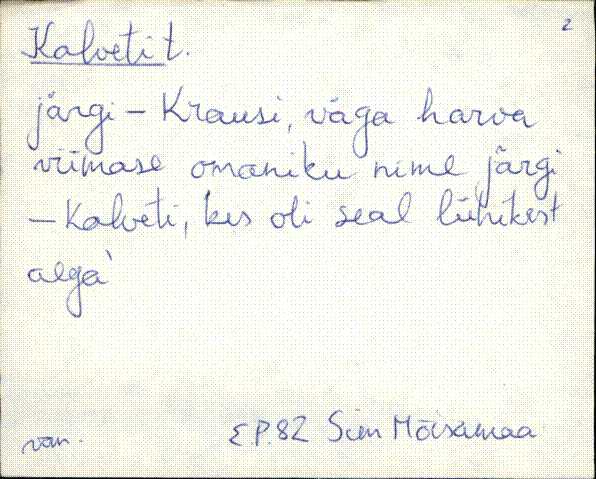 2
Kalveti t.
järgi - Krausi, väga harva
viimase omaniku nime järgi
- Kalveti, kes oli seal lühikest
aega`
van. E.P. 82 Siim Mõisamaa